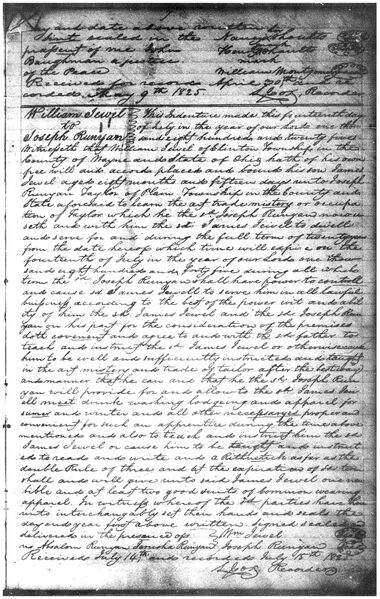 and date above written
Signed sealed in the Nancy
presents of me John
Baughman a justice
of the Peace William Montgomery
Received for record April 20th
May 9th 1825 L Cox Recorder
William Jewel This Indenture made this fourteenth day
to of July in the year of our Lord one thou
Joseph Runyan and eight hundred and twenty five
Witnesseth that Wm Jewel of Clinton Township in the
County of Wayne and State of Ohio hath of his own
free will and accord placed and bound his son James
Jewel aged eight months and fifteen days unto Joseph
Runyan Taylor of Plain Township in the County and
State aforesaid to learn the art trade mistery or occupa
tion of Taylor which he the sd Joseph Runyan now
seth and with him the sd James Jewel to dwell
and serve for and during the full term of twenty years
from the date hereof which time will expire on the
fourteenth of July in the year of our Lord one thou
sand eight hundred and forty five during all which
time the sd Joseph Runyan shall have power to controll
and cause sd James Jewell to serve him in all lawfull
business according to the best of the power wit and abili
ty of him the sd James Jewel and the sd Joseph Run
yan on his part for the consideration of the premises
doth covenant and agree to and with the sd father to
teach and instruct the sd James Jewel or otherwise cause
him to be well and sufficiently instructed and taught
in the art mistery and trade of tailor after the best way
and manner that he can and that he the sd Joseph Run
yan will provide for and allow to the sd James Jewel
meat drink washing lodging and apparel for
sumer and winter and all other necessarys proper and
convenient for such an apprentice during the time above
mentioned and also to teach and instruct him the sd
James Jewel or cause him to be taught and instruct
ed to read and write and Arithmetick as far as the
double Rule of three and at the expiration of sd term
shall and will give unto said James Jewel one new
bible and at least two good suits of common wearing
apparel. In witness whereof the sd parties have here
unto interchangibly set their hand and seals the
day and year first above written. Signed sealed &
delivered in the presence of us Wm Jewel
Absalom Runyan Runyan Joseph Runyan
Received July 14th and recorded July 15th 1825
L Cox Recorder